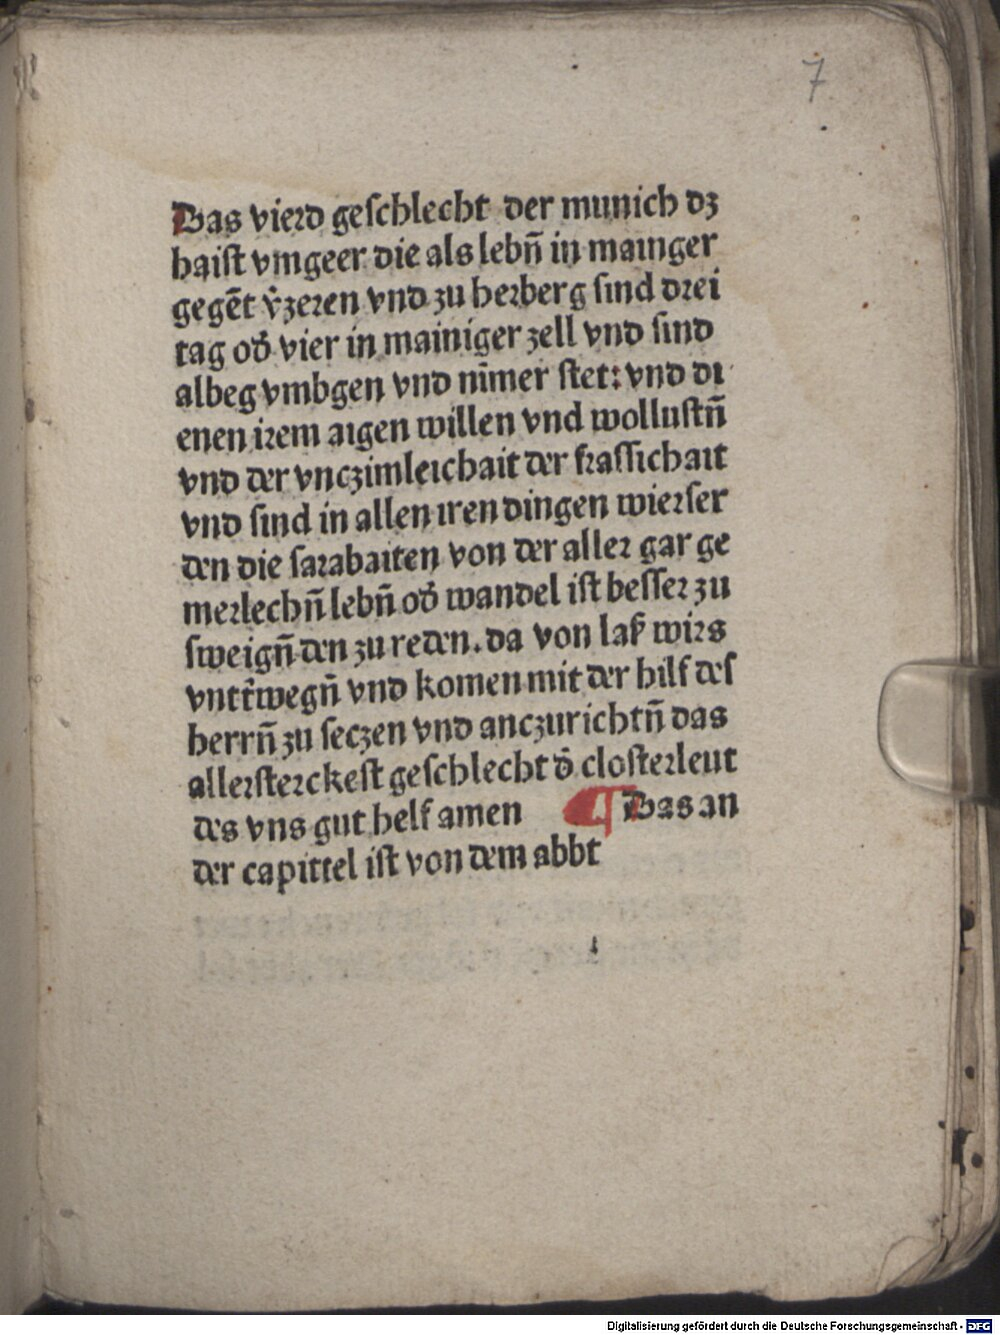 7
Das vierd geſchlecht der munich dʒ
haiſt vmgeer die als lebn̄ in mainger
gegēt v̈zeren vnd zu herberg ſind drei
tag od̾ vier in mainiger zell vnd ſind
albeg vmbgen vnd nīmer ſtet: vnd di
enen irem aigen willen vnd wolluſtn̄
vnd der vnczimleichait der fraſſichait
vnd ſind in allen iren dingen wierſer
den die ſarabaiten von der aller gar ge
merlechn̄ lebn̄ od̾ wandel iſt beſſer zu
ſweign̄ den zu reden. da von laſ wirs
vntr̄wegn̄ vnd komen mit der hilf deſ
herrn̄ zu ſeczen vnd anczurichtn̄ das
allerſterckeſt geſchlecht d̾ cloſterleut
des vns gut helf amen ¶ Das an
der capittel iſt von dem abbt
Digitalisierung gefördert durch die Deutsche Forschungsgemeinschaft - DFG